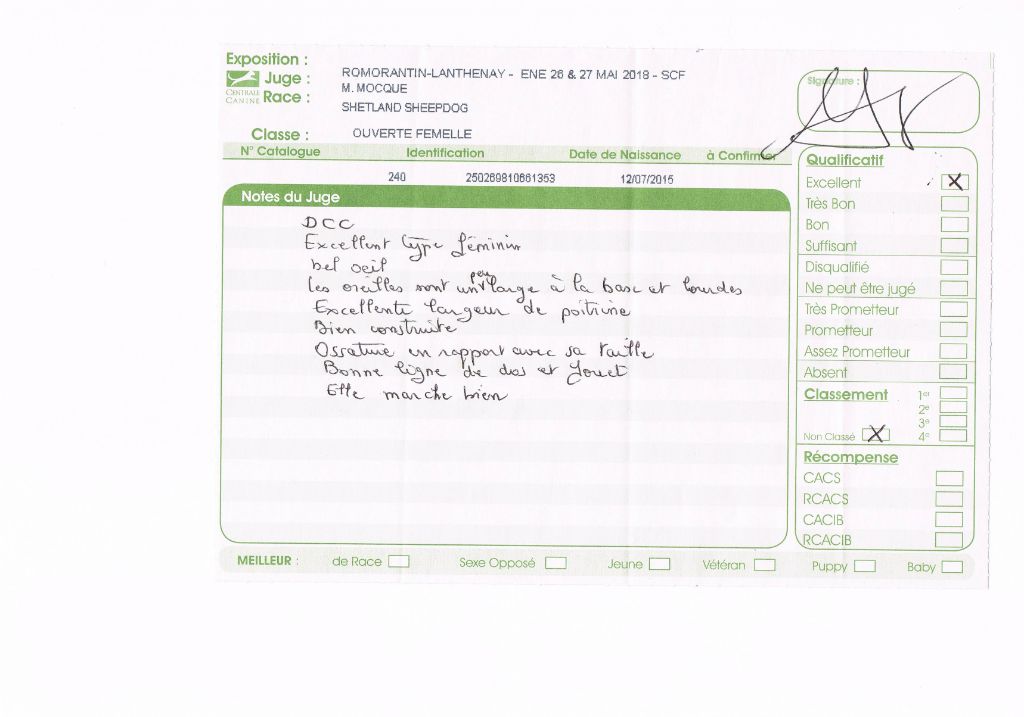 Exposition :
ROMORANTIN-LANTHENAY - ENE 26 & 27 MAI 2018 - SCF
CENTRALE CANINE
Juge :
M. MOCQUE
Race :
SHETLAND SHEEPDOG
Classe :
OUVERTE FEMELLE
Signature :
N° Catalogue Identification Date de Naissance à Confirmer
240 250269810661353 12/07/2015
Notes du Juge
DCC
Excellent type féminin
bel oeil
les oreilles sont un peu large à la base et lourdes
Excellente largeur de poitrine
Bien construite
Ossature en rapport avec sa taille
Bonne ligne de dos et fouet
Elle marche bien
Qualificatif
Excellent X
Très Bon
Bon
Suffisant
Disqualifié
Ne peut être jugé
Très Prometteur
Prometteur
Assez Prometteur
Absent
Classement 1er
2e
3e
Non Classé X 4e
Récompense
CACS
RCACS
CACIB
RCACIB
MEILLEUR : de Race Sexe Opposé Jeune Vétéran Puppy Baby